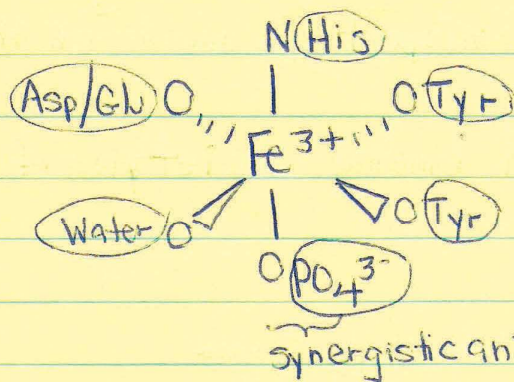 N His
Asp/Glu O O Tyr
Fe³⁺
Water O O Tyr
O PO₄³⁻
synergistic an